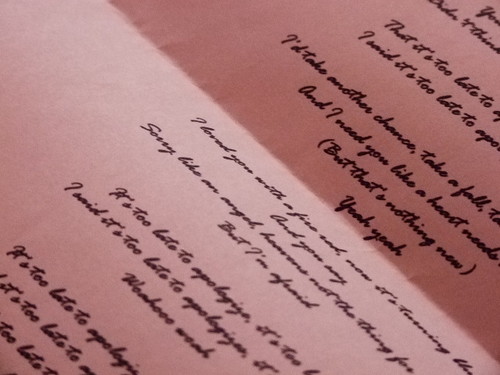 That it's too late to
I said it's too late to apo
I'd take another chance, take a fall
And I need you like a heart needs
(But that's nothing new)
Yeah yeah
I loved you with a fire red, now it's turning
And you say
Sorry like an angel, heaven not the thing for
But I'm afraid
It's too late to apologize, it's too
I said it's too late to apologize, it
Woahooo woah
It's too late to apologize
it's too late to
too late to